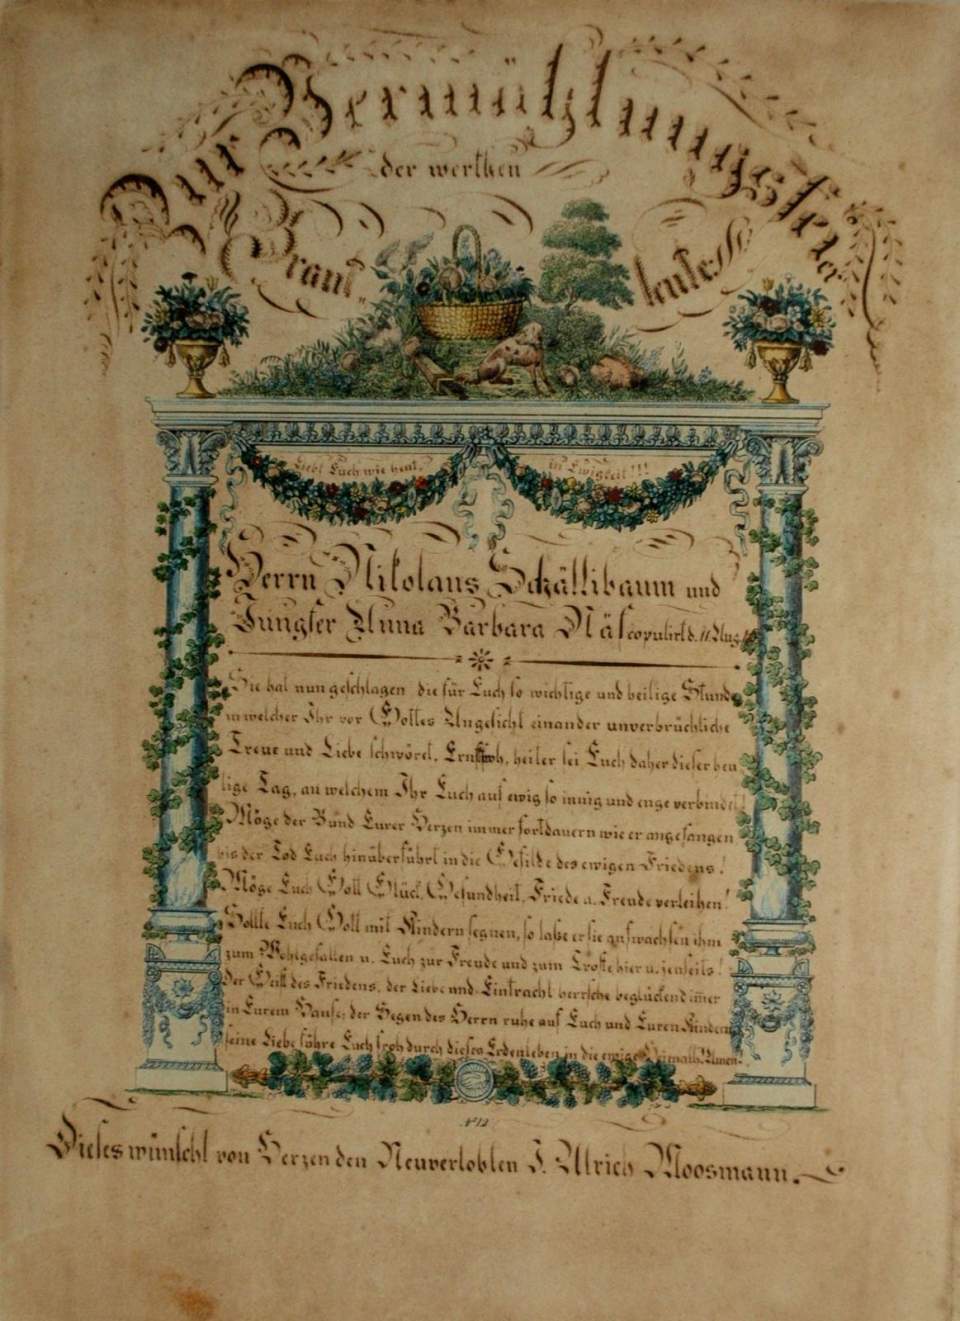 Zur Vermühlungsfeier
der werthen
Braut- leute
Liebt Euch wie heut,
in Ewigkeit!!!
Herrn Nikolaus Schällibaum und
Jungfer Anna Barbara Näf copulirt d. 11 Aug
Sie hat nun geschlagen die für Euch so wichtige und heilige Stunde
in welcher Ihr vor Gottes Angesicht einander unverbrüchliche
Treue und Liebe schwöret, Ernst froh, heiter sei Euch daher dieser heu
tige Tag, an welchem Ihr Euch auf ewig so innig und enge verbindet!
Möge der Bund Eurer Herzen immer fortdauern wie er angefangen
bis der Tod Euch hinüberführt in die Gefilde des ewigen Friedens!
Möge Euch Gott Glück, Gesundheit, Friede u. Freude verleihen!
Sollte Euch Gott mit Kindern segnen, so lasse er sie aufwachsen ihm
zum Wohlgefallen u. Euch zur Freude und zum Troste hier u. jenseits!
Der Geist des Friedens, der Liebe und Eintracht herrsche beglückend im̅er
in Eurem Hause; der Segen des Herrn ruhe auf Euch und Euren Kindern
seine Liebe führe Euch froh durch dieses Erdenleben in die ewige Heimath! Amen.
No 12
Dieses wünscht von Herzen den Neuverlobten J. Ulrich Moosmann.